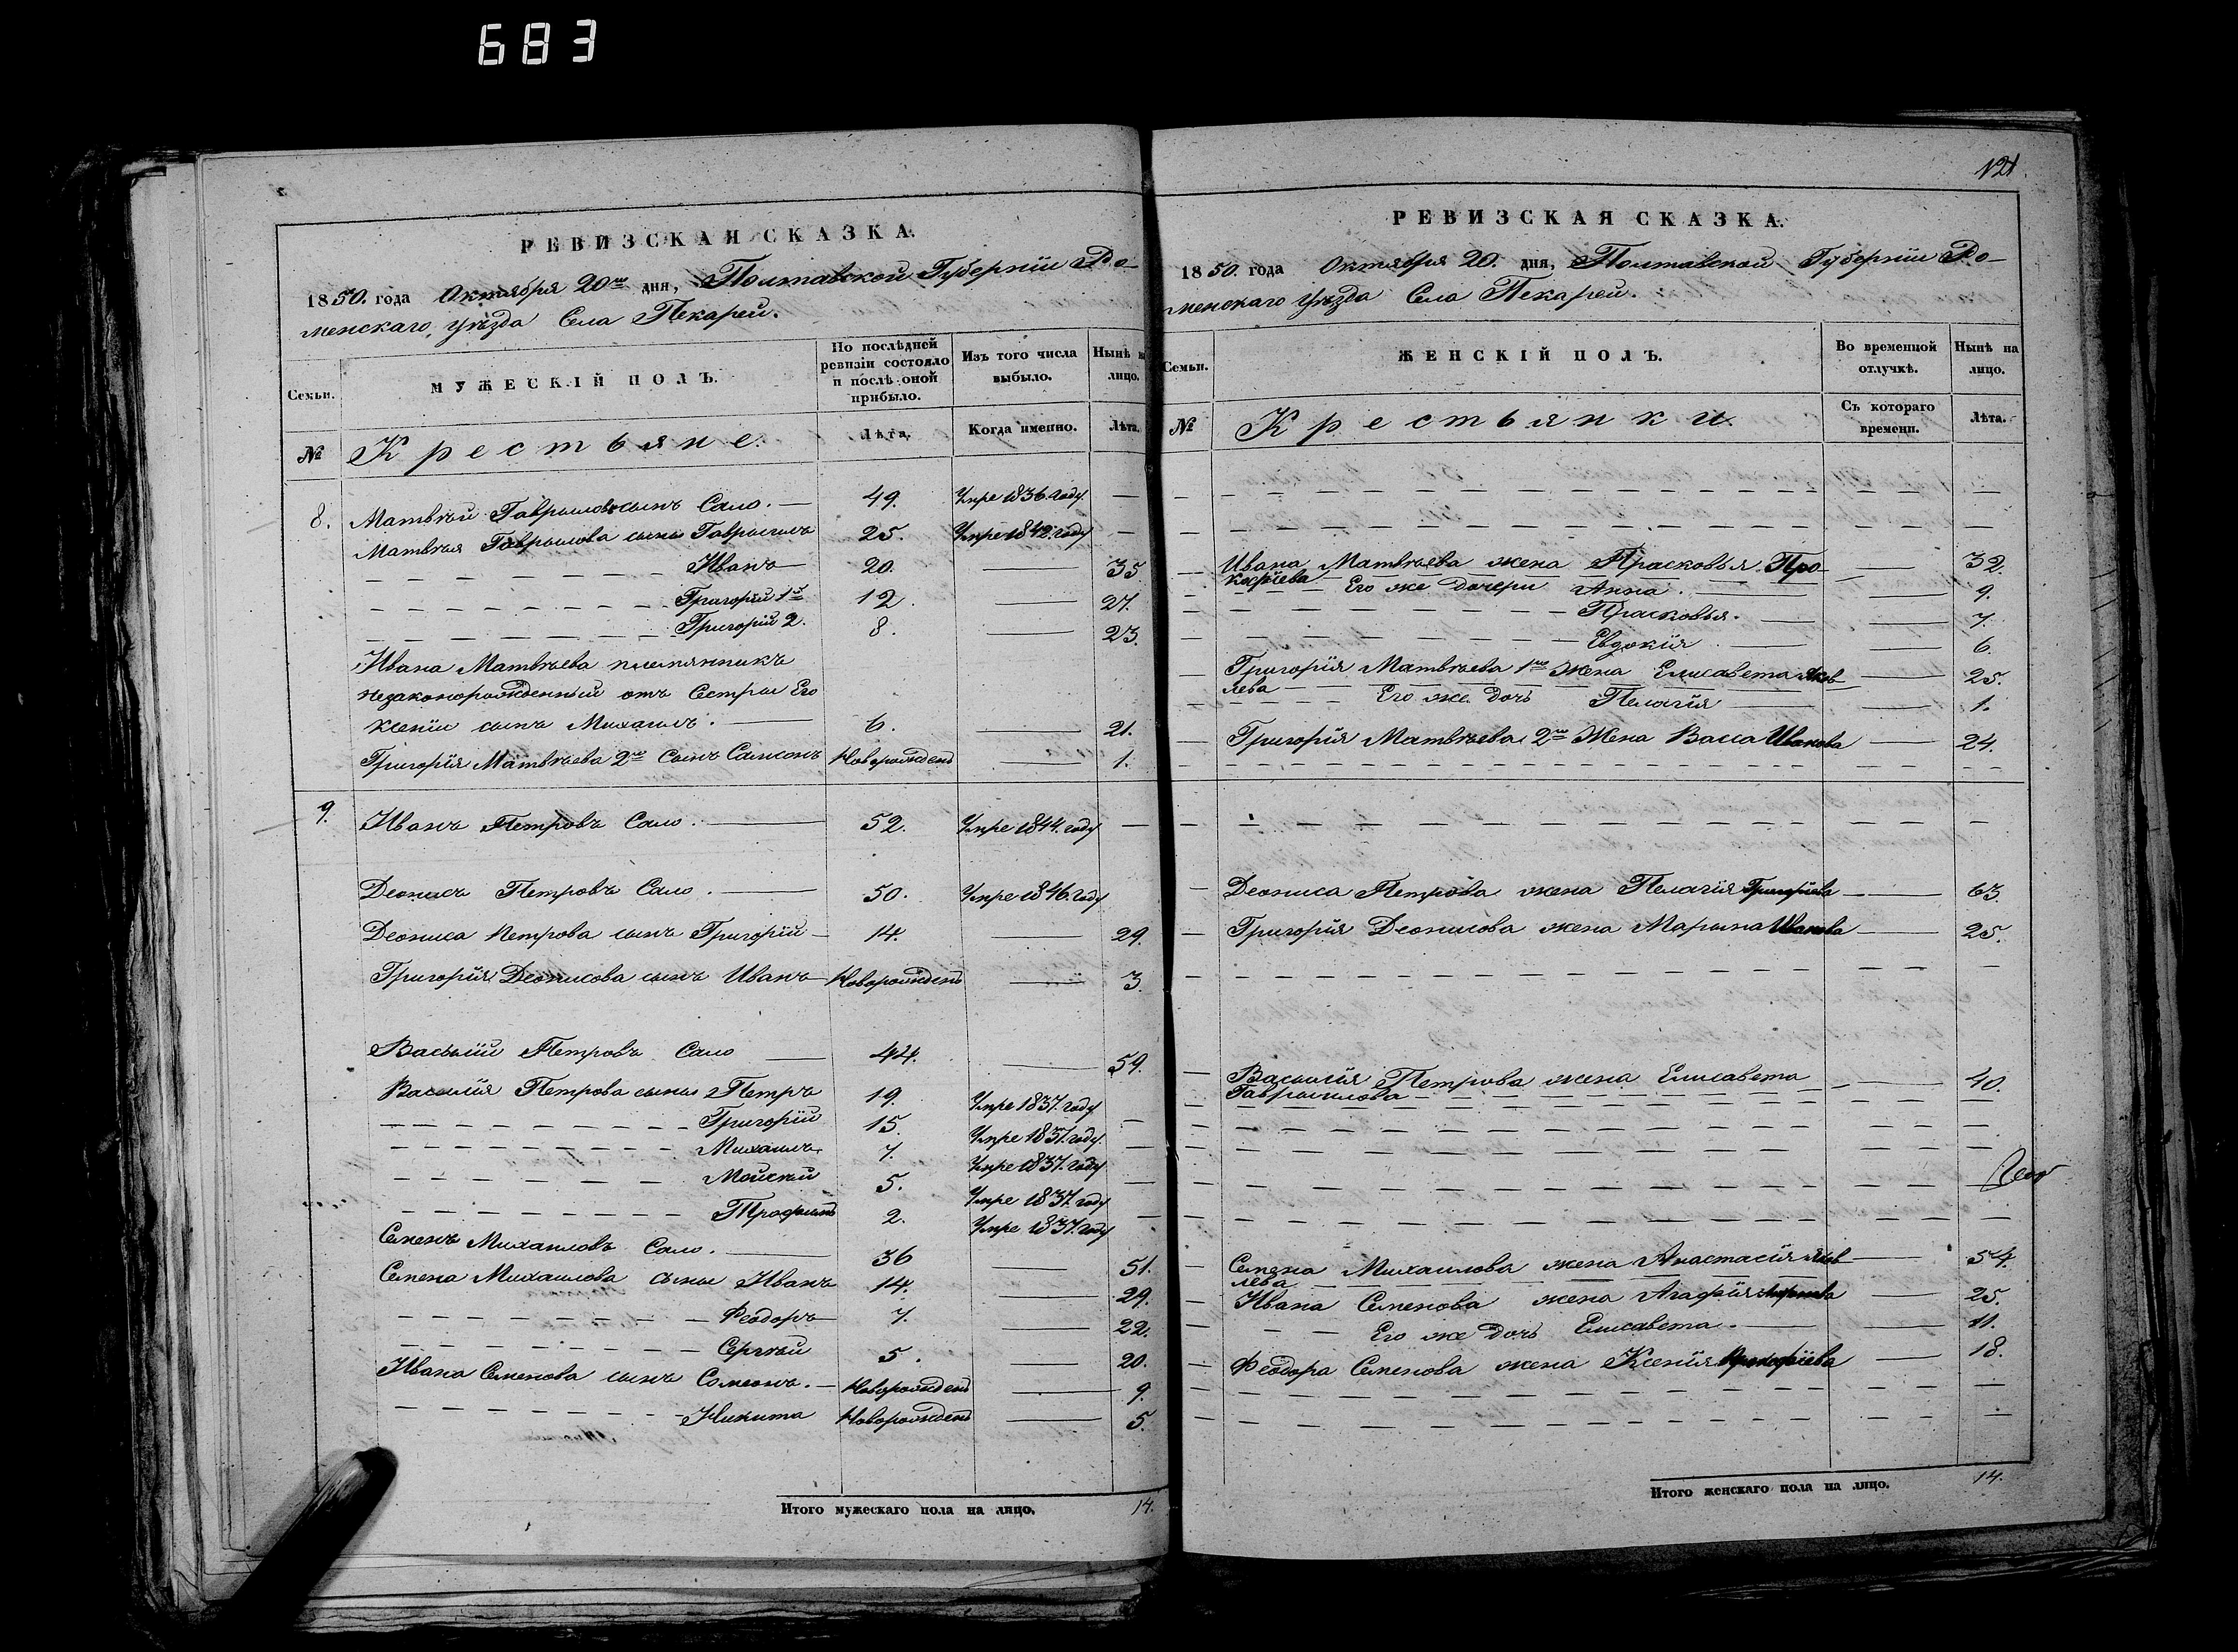 683
РЕВИЗСКАЯ СКАЗКА.
1850. года Октября 20го дня, Полтавской Губерніи Ро-
менскаго уѣзда Села Пекарей.
Семьи.
МУЖЕСКІЙ ПОЛЪ.
По послѣдней ревизіи состояло и послѣ оной прибыло.
Изъ того числа выбыло.
Нынѣ на лицо.
№
Крестьяне.
Лѣта.
Когда именно.
Лѣта.
8. Матвѣй Гаврыловъ сынъ Сало. — 49. Умре 1836. году —
Матвѣя Гаврылова сыны Гаврыилъ 25. Умре 1842. году —
Иванъ 20. — 35.
Григорій 1й 12. — 27.
Григорій 2. 8. — 23.
Ивана Матвѣева племянникъ
незаконорожденный отъ Сестры Его
Ксеніи сынъ Михаилъ. — 6. — 21.
Григорія Матвѣева 2го Сынъ Самсонъ Новорожденъ — 1.
9. Иванъ Петровъ Сало. — 52. Умре 1844. году —
Деонисъ Петровъ Сало. — 50. Умре 1846. году
Деониса Петрова сынъ Григорій — 14. — 29.
Григорія Деонисова сынъ Иванъ — Новорожденъ — 3.
Василій Петровъ Сало — 44. — 59.
Василія Петрова сыны Петръ 19. Умре 1837. году
Григорій 15. Умре 1837. году. —
Михаилъ 7. Умре 1837. году —
Мойсѣй 5. Умре 1837. году —
Трофимъ 2. Умре 1837. году —
Семенъ Михаиловъ Сало. — 36 — 51.
Семена Михаилова сыны Иванъ 14. — 29.
Феодоръ 7. — 22.
Сергѣй 5. — 20.
Ивана Семенова сынъ Семеонъ. — Новорожденъ — 9.
Никита Новорожденъ — 5.
Итого мужескаго пола на лицо. 14.
121.
РЕВИЗСКАЯ СКАЗКА.
1850. года Октября 20. дня, Полтавской Губерніи Ро-
менскаго уѣзда Села Пекарей.
Семьи.
ЖЕНСКІЙ ПОЛЪ.
Во временной отлучкѣ.
Нынѣ на лицо.
№
Крестьянки.
Съ котораго времени.
Лѣта.
Ивана Матвѣева жена Прасковья Про- — 32.
кофіева
Его же дочери Анна. — 9.
Прасковья. — 7.
Евдокія — 6.
Григорія Матвѣева 1го Жена Елисавета Яков — 25.
лева
Его же Дочь Пелагія — 1.
Григорія Матвѣева 2го Жена Васса Иванова — 24.
Деониса Петрова жена Пелагія Григоріева — 63.
Григорія Деонисова жена Марына Иванова — 25.
Василія Петрова жена Елисавета — 40.
Гаврыилова
Семена Михаилова жена Анастасія Яков — 54.
лева
Ивана Семенова жена Агафія — 25.
Его же Дочь Елисавета. — 11.
Феодора Семенова жена Ксенія Прокофіева — 18.
Итого женскаго пола на лицо. 14.